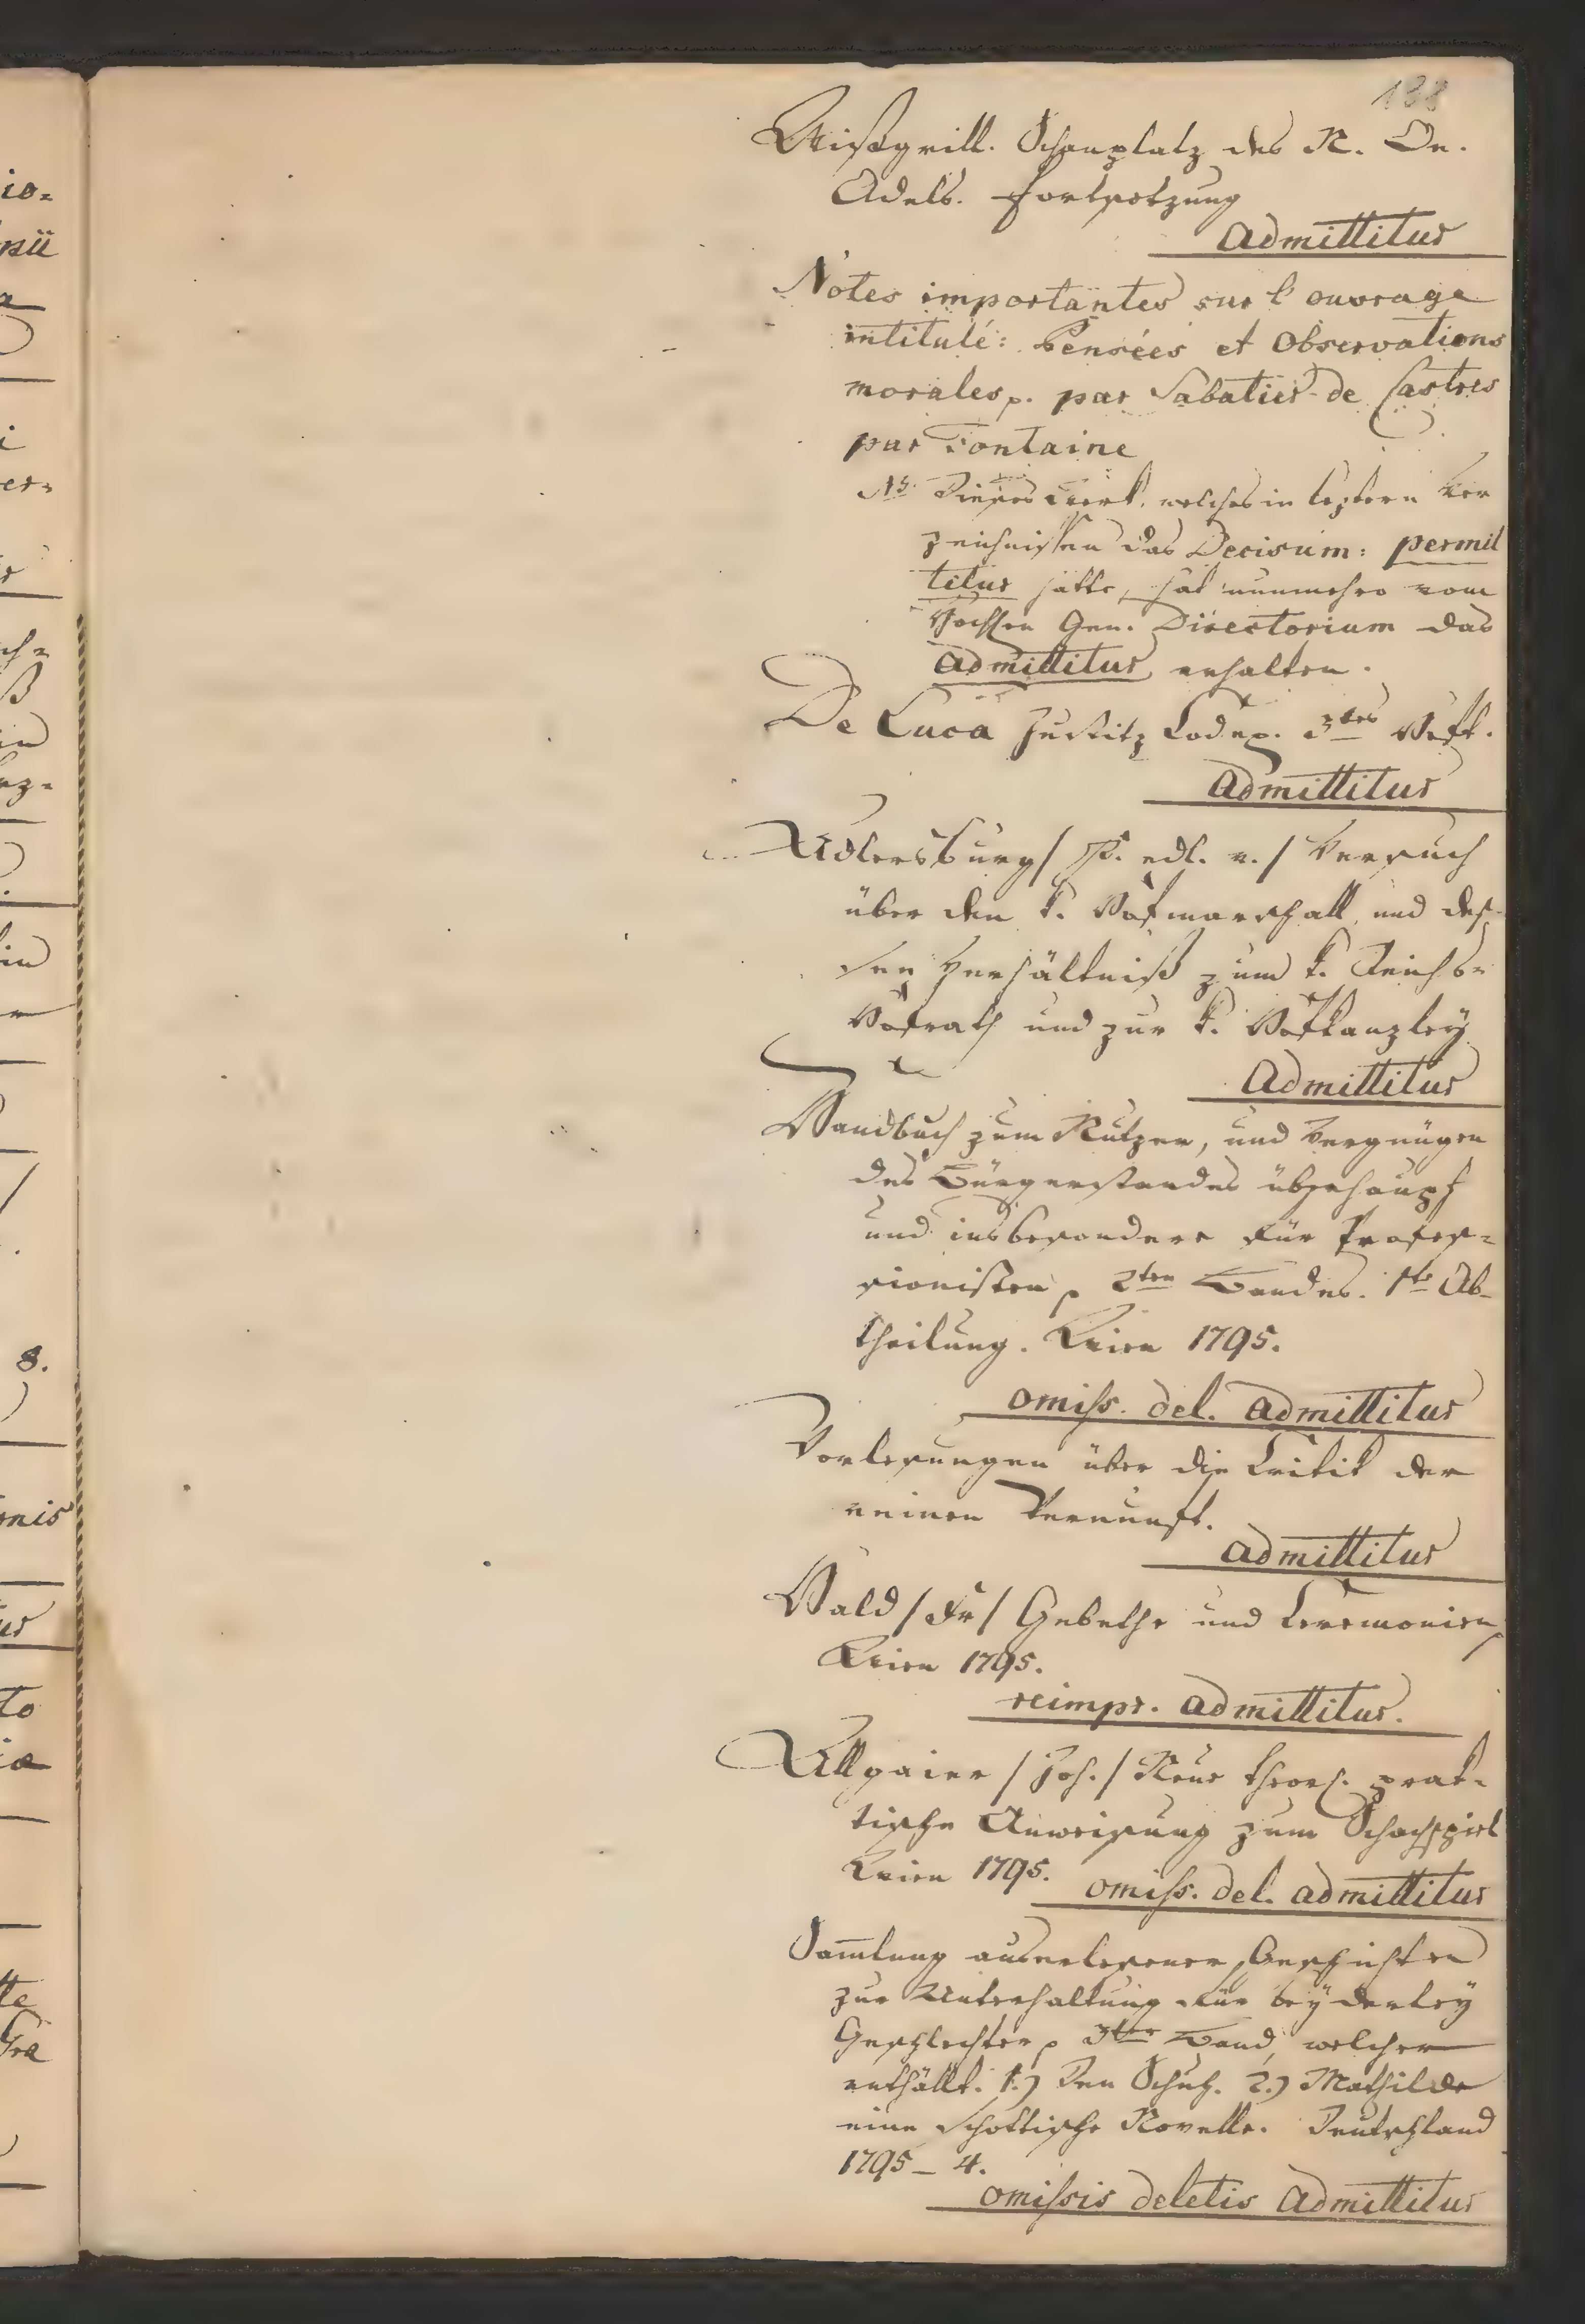 138
Wißgrill. Schauplatz des N. Oe.
Adels. Fortsetzung
admittitur
Notes importantes sur l'ouvrage
intitulé: Pensées et Observations
morales p. par Sabatier de Castres
par Fontaine
NB. Dieses Werk, welches in leztern Ver
zeichnissen das Decisum: permit
titur hatte, hat nunmehro vom
Hochsten Gen. Directorium das
admittitur erhalten.
De Luca Justitz Codex. 3tes Heft.
admittitur
Adlersburg / P. edl. v. / Versuch
über den k. Hofmarschall und des¬
sen Verhältniß zum k. Reichs¬
Hofrath und zur k. Hofkanzley
Admittitur
Handbuch zum Nutzen, und Vergnügen
des Bürgerstandes überhaupt
und insbesondere für Profes¬
sionisten p 2ten Bandes. 1te Ab¬
theilung. Wien 1795.
omiss. del. admittitur
Vorlesungen über die Critik der
reinen Vernunft.
admittitur
Wald / Fr / Gebethe und Ceremonien p
Wien 1795.
reimpr. admittitur.
Allgaier / Joh. / Neue theor. prak¬
tische Anweisung zum Schachspiel
Wien 1795. omiss. del. admittitur
Sam̄lung auserlesener Geschichten
zur Unterhaltung für beyderley
Geschlechter p 3ter Band, welcher
enthällt. 1.) Den Schuh. 2.) Mathilde
eine Schottische Novelle. Deutschland
1795 – 4.
omissis deletis admittitur